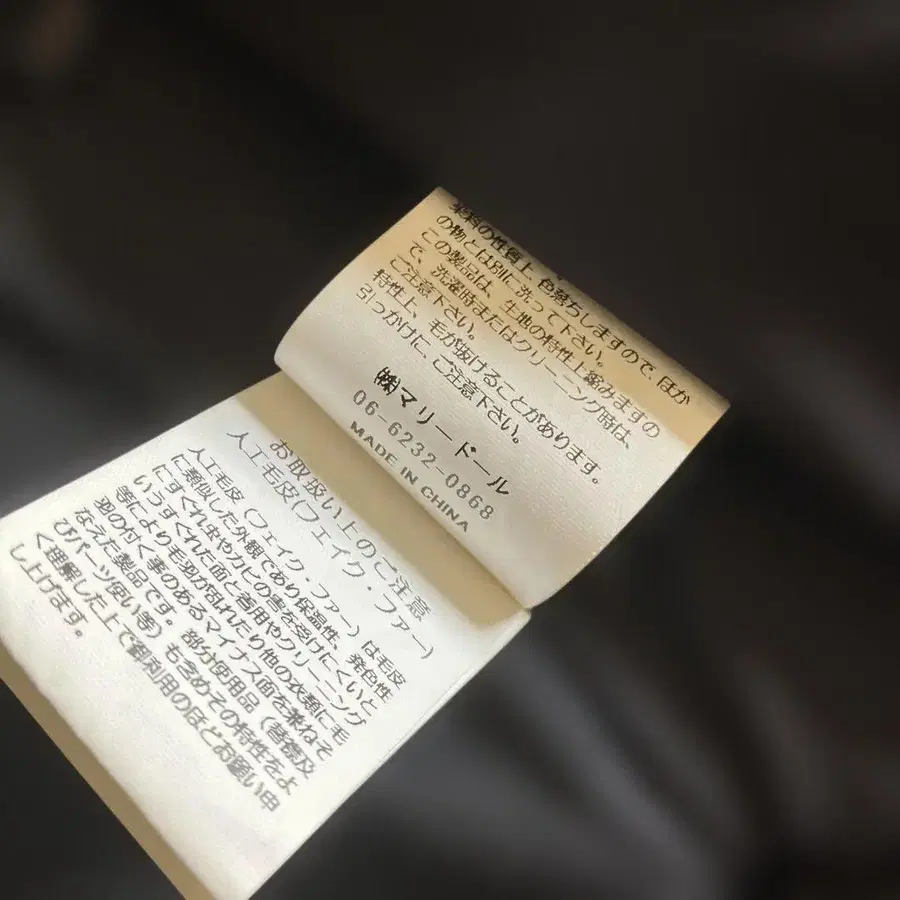 染料の性質上、色落ちしますので、ほか
の物とは別に洗って下さい。
この製品は、生地の特性上縮みますの
で、洗濯時またはクリーニング時は、
ご注意下さい。
特性上、毛が抜けることがあります。
引っかけに、ご注意下さい。
㈱マリードール
06-6232-0868
MADE IN CHINA
お取扱い上のご注意
人工毛皮(フェイク・ファー)
人工毛皮(フェイク・ファー)は毛皮
に類似した外観であり保温性、発色性
にすぐれ虫やカビの害を受けにくいと
いうすぐれた面と着用やクリーニング
等により毛羽が乱れたり他の衣類に毛
羽の付く事のあるマイナス面を兼ねそ
なえた製品です。部分使用品(着傷及
びパーツ使い等)も含めての特性をよ
く理解した上で御利用のほどお願い申
し上げます。